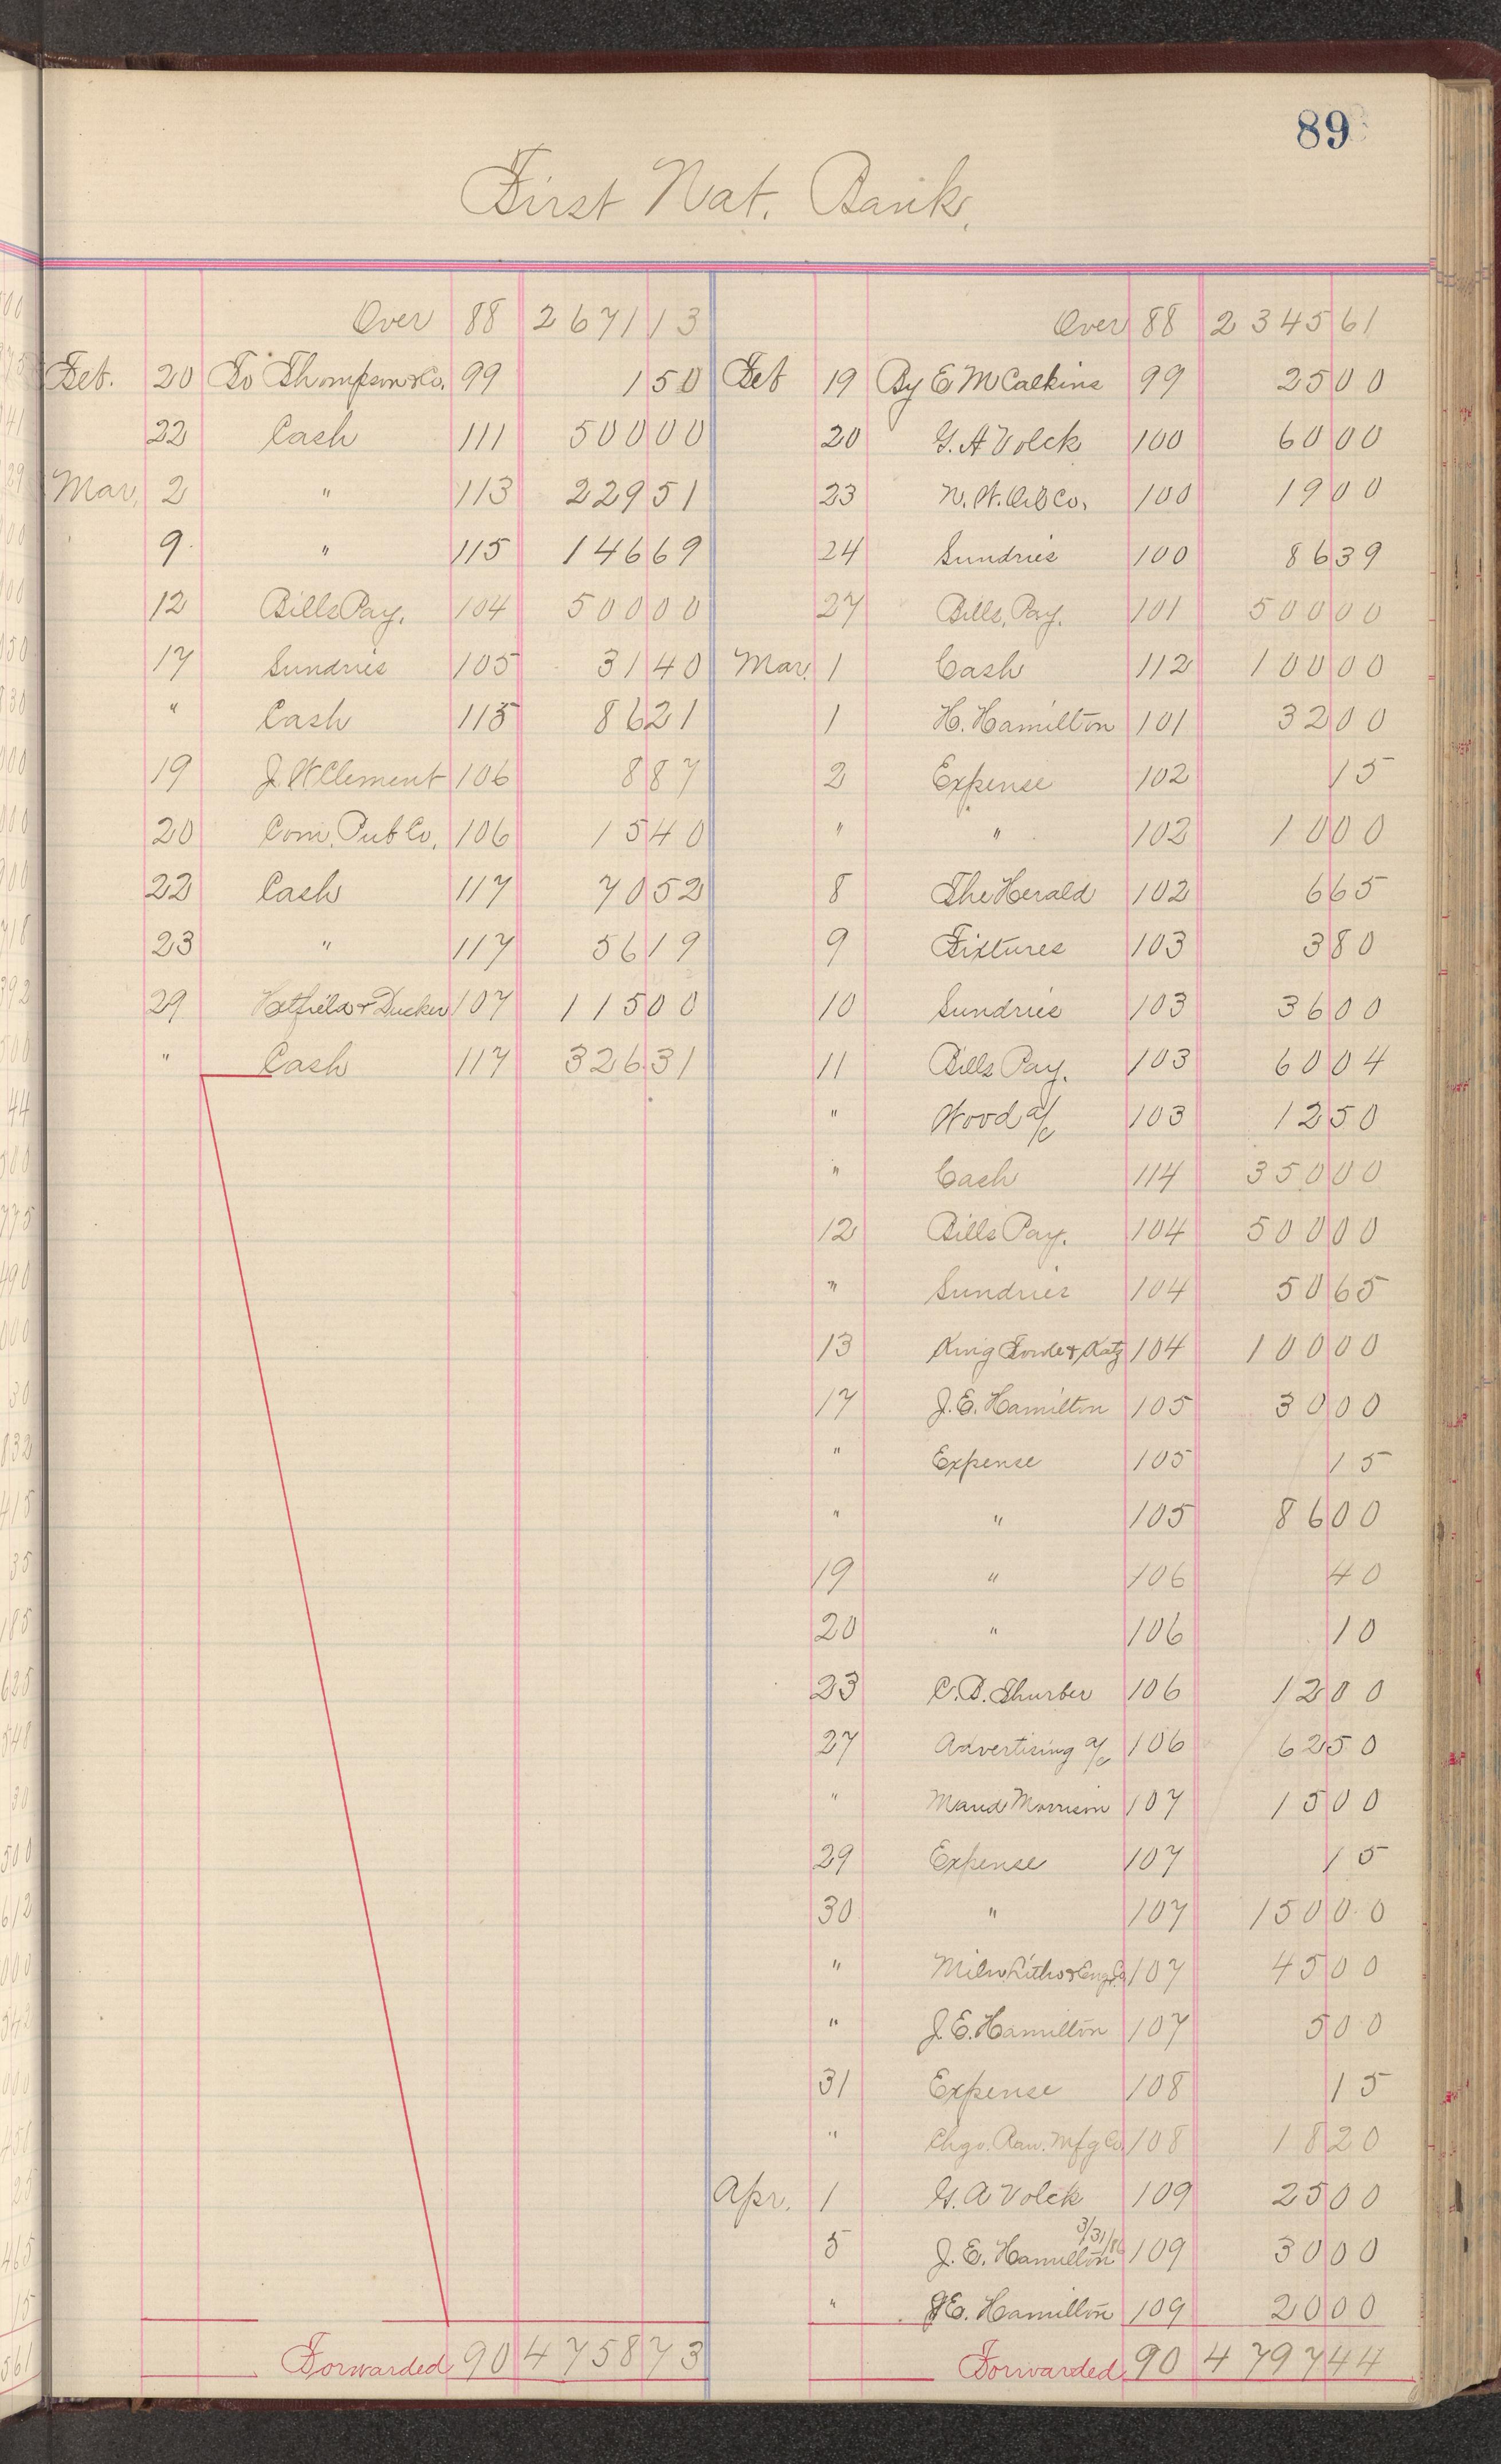 89
First Nat. Bank.
Over 88 2671 13
Feb. 20 To Thompson & Co. 99 1 50
22 Cash 111 500 00
Mar. 2 " 113 229 51
9 " 115 146 69
12 Bills Pay. 104 500 00
17 Sundries 105 31 40
" Cash 115 86 21
19 J. W. Clement 106 8 87
20 Com. Pub Co. 106 15 40
22 Cash 117 70 52
23 " 117 56 19
29 Hatfield & Ducker 107 115 00
" Cash 117 326 31
Forwarded 90 4758 73
Over 88 2345 61
Feb 19 By E M Calkins 99 25 00
20 G. A Volck 100 60 00
23 N. W. Co. 100 19 00
24 Sundries 100 86 39
27 Bills, Pay. 101 500 00
Mar. 1 Cash 112 100 00
1 H. Hamilton 101 32 00
2 Expense 102 15
" " 102 10 00
8 The Herald 102 6 65
9 Fixtures 103 3 80
10 Sundries 103 36 00
11 Bills Pay. 103 60 04
" Wood a/c 103 12 50
" Cash 114 350 00
12 Bills Pay. 104 500 00
" Sundries 104 50 65
13 King Fowle & Katz 104 100 00
17 J. E. Hamilton 105 30 00
" Expense 105 15
" " 105 86 00
19 " 106 40
20 " 106 10
23 C. D. Thurber 106 12 00
27 Advertising a/c 106 62 50
" Maud Morrison 107 15 00
29 Expense 107 15
30 " 107 150 00
" Milw Litho & Eng Co 107 45 00
" J. E. Hamilton 107 5 00
31 Expense 108 15
" Chgo. Raw. Mfg Co 108 18 20
Apr. 1 G. A Volck 109 25 00
5 J. E. Hamilton 3/31/86 109 30 00
" J E. Hamilton 109 20 00
Forwarded 90 4797 44